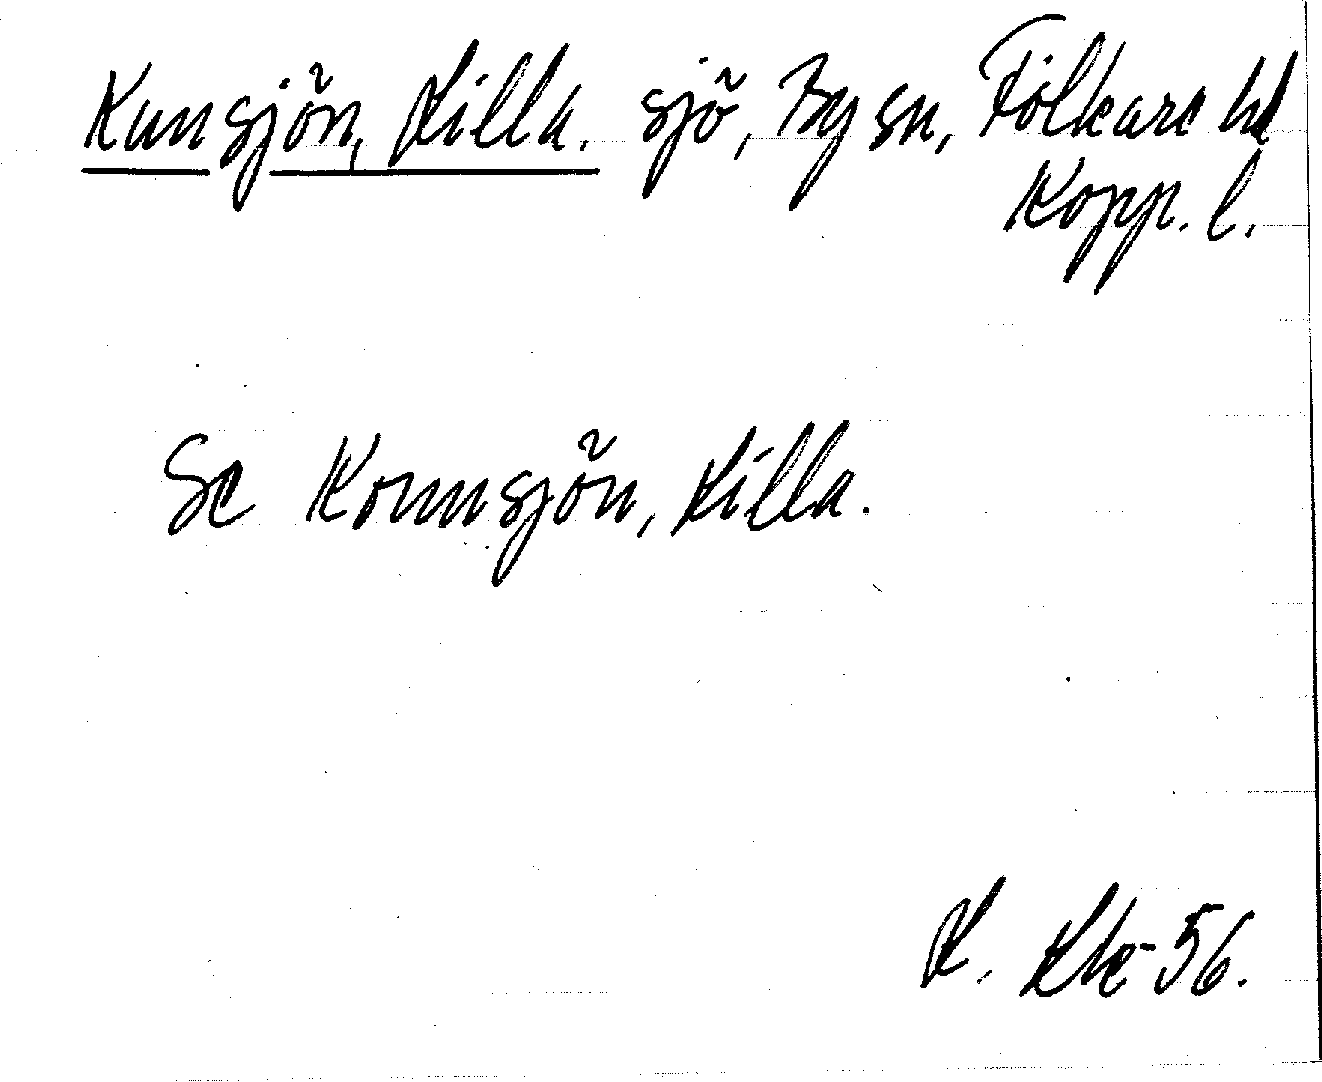 Kunsjön, Lilla. sjö, By sn, Folkare hd
Kopp. l.
Se Konnsjön, Lilla.
56.